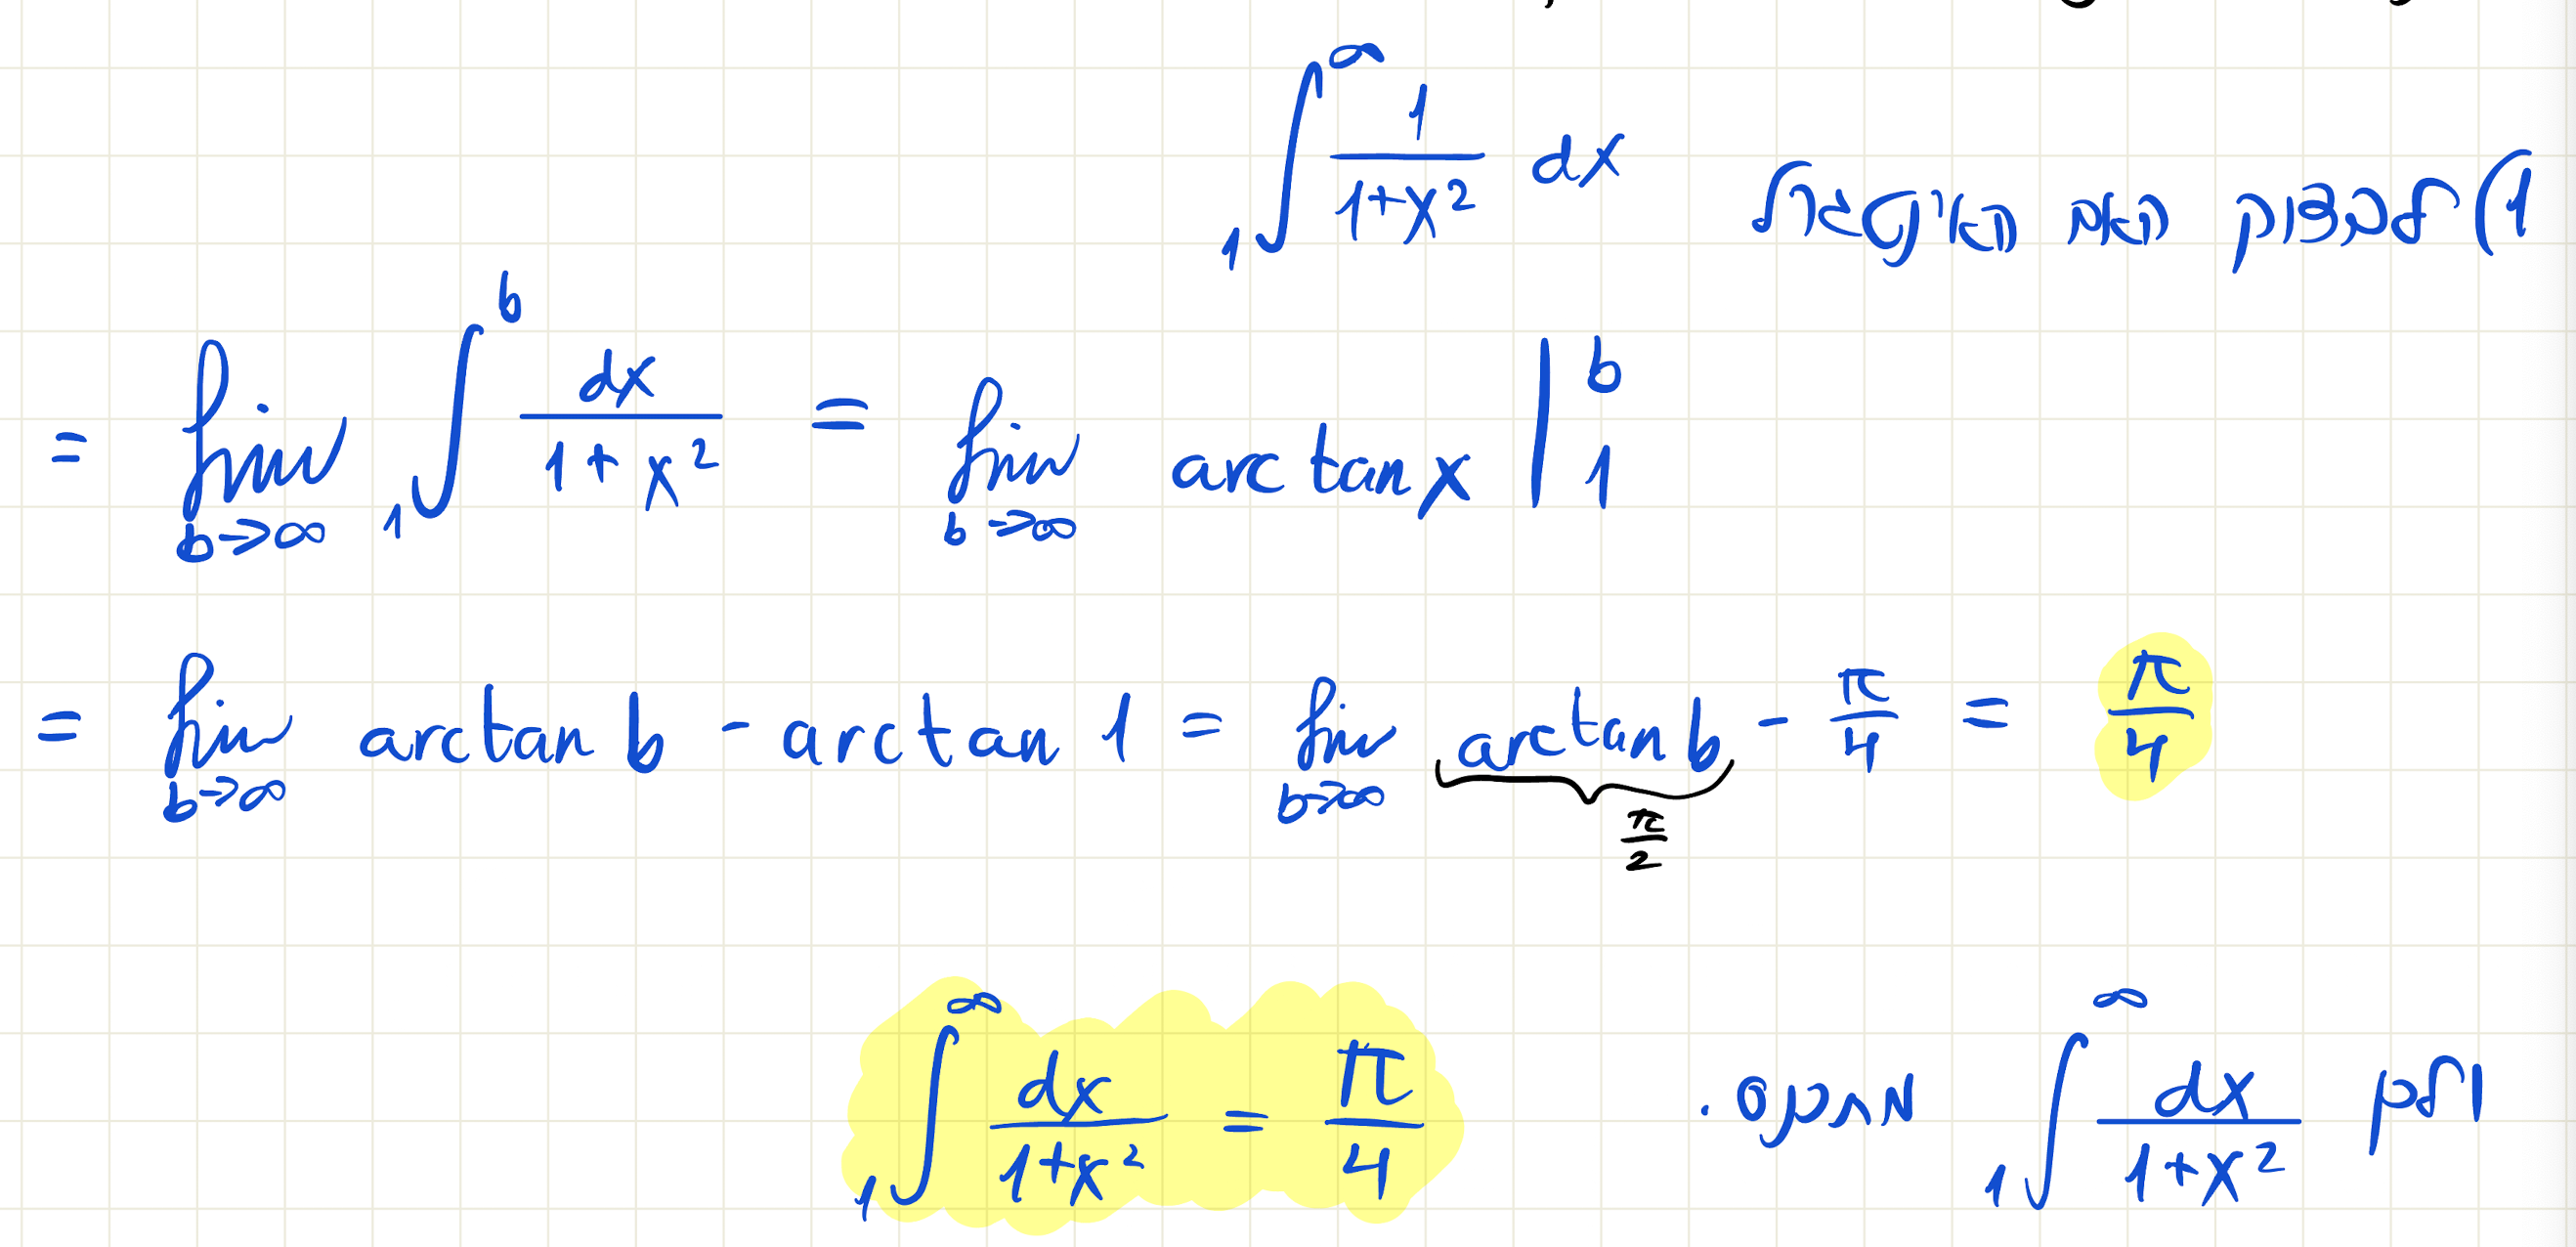 1) נבדוק האם האינטגרל ∫₁^∞ 1/(1+x²) dx
= lim_{b→∞} ∫₁^b dx/(1+x²) = lim_{b→∞} arctan x |₁^b
= lim_{b→∞} arctan b - arctan 1 = lim_{b→∞} arctan b - π/4 = π/4
π/2
ולכן ∫₁^∞ dx/(1+x²) מתכנס. ∫₁^∞ dx/(1+x²) = π/4